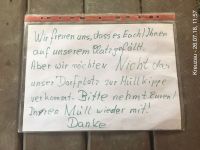 Wir freuen uns, dass es Euch/Ihnen
auf unserem Platz gefällt.
Aber wir möchten Nicht das
unser Dorfplatz zur Müllkippe
verkommt. Bitte nehmt Euren/
Ihren Müll wieder mit!
Danke